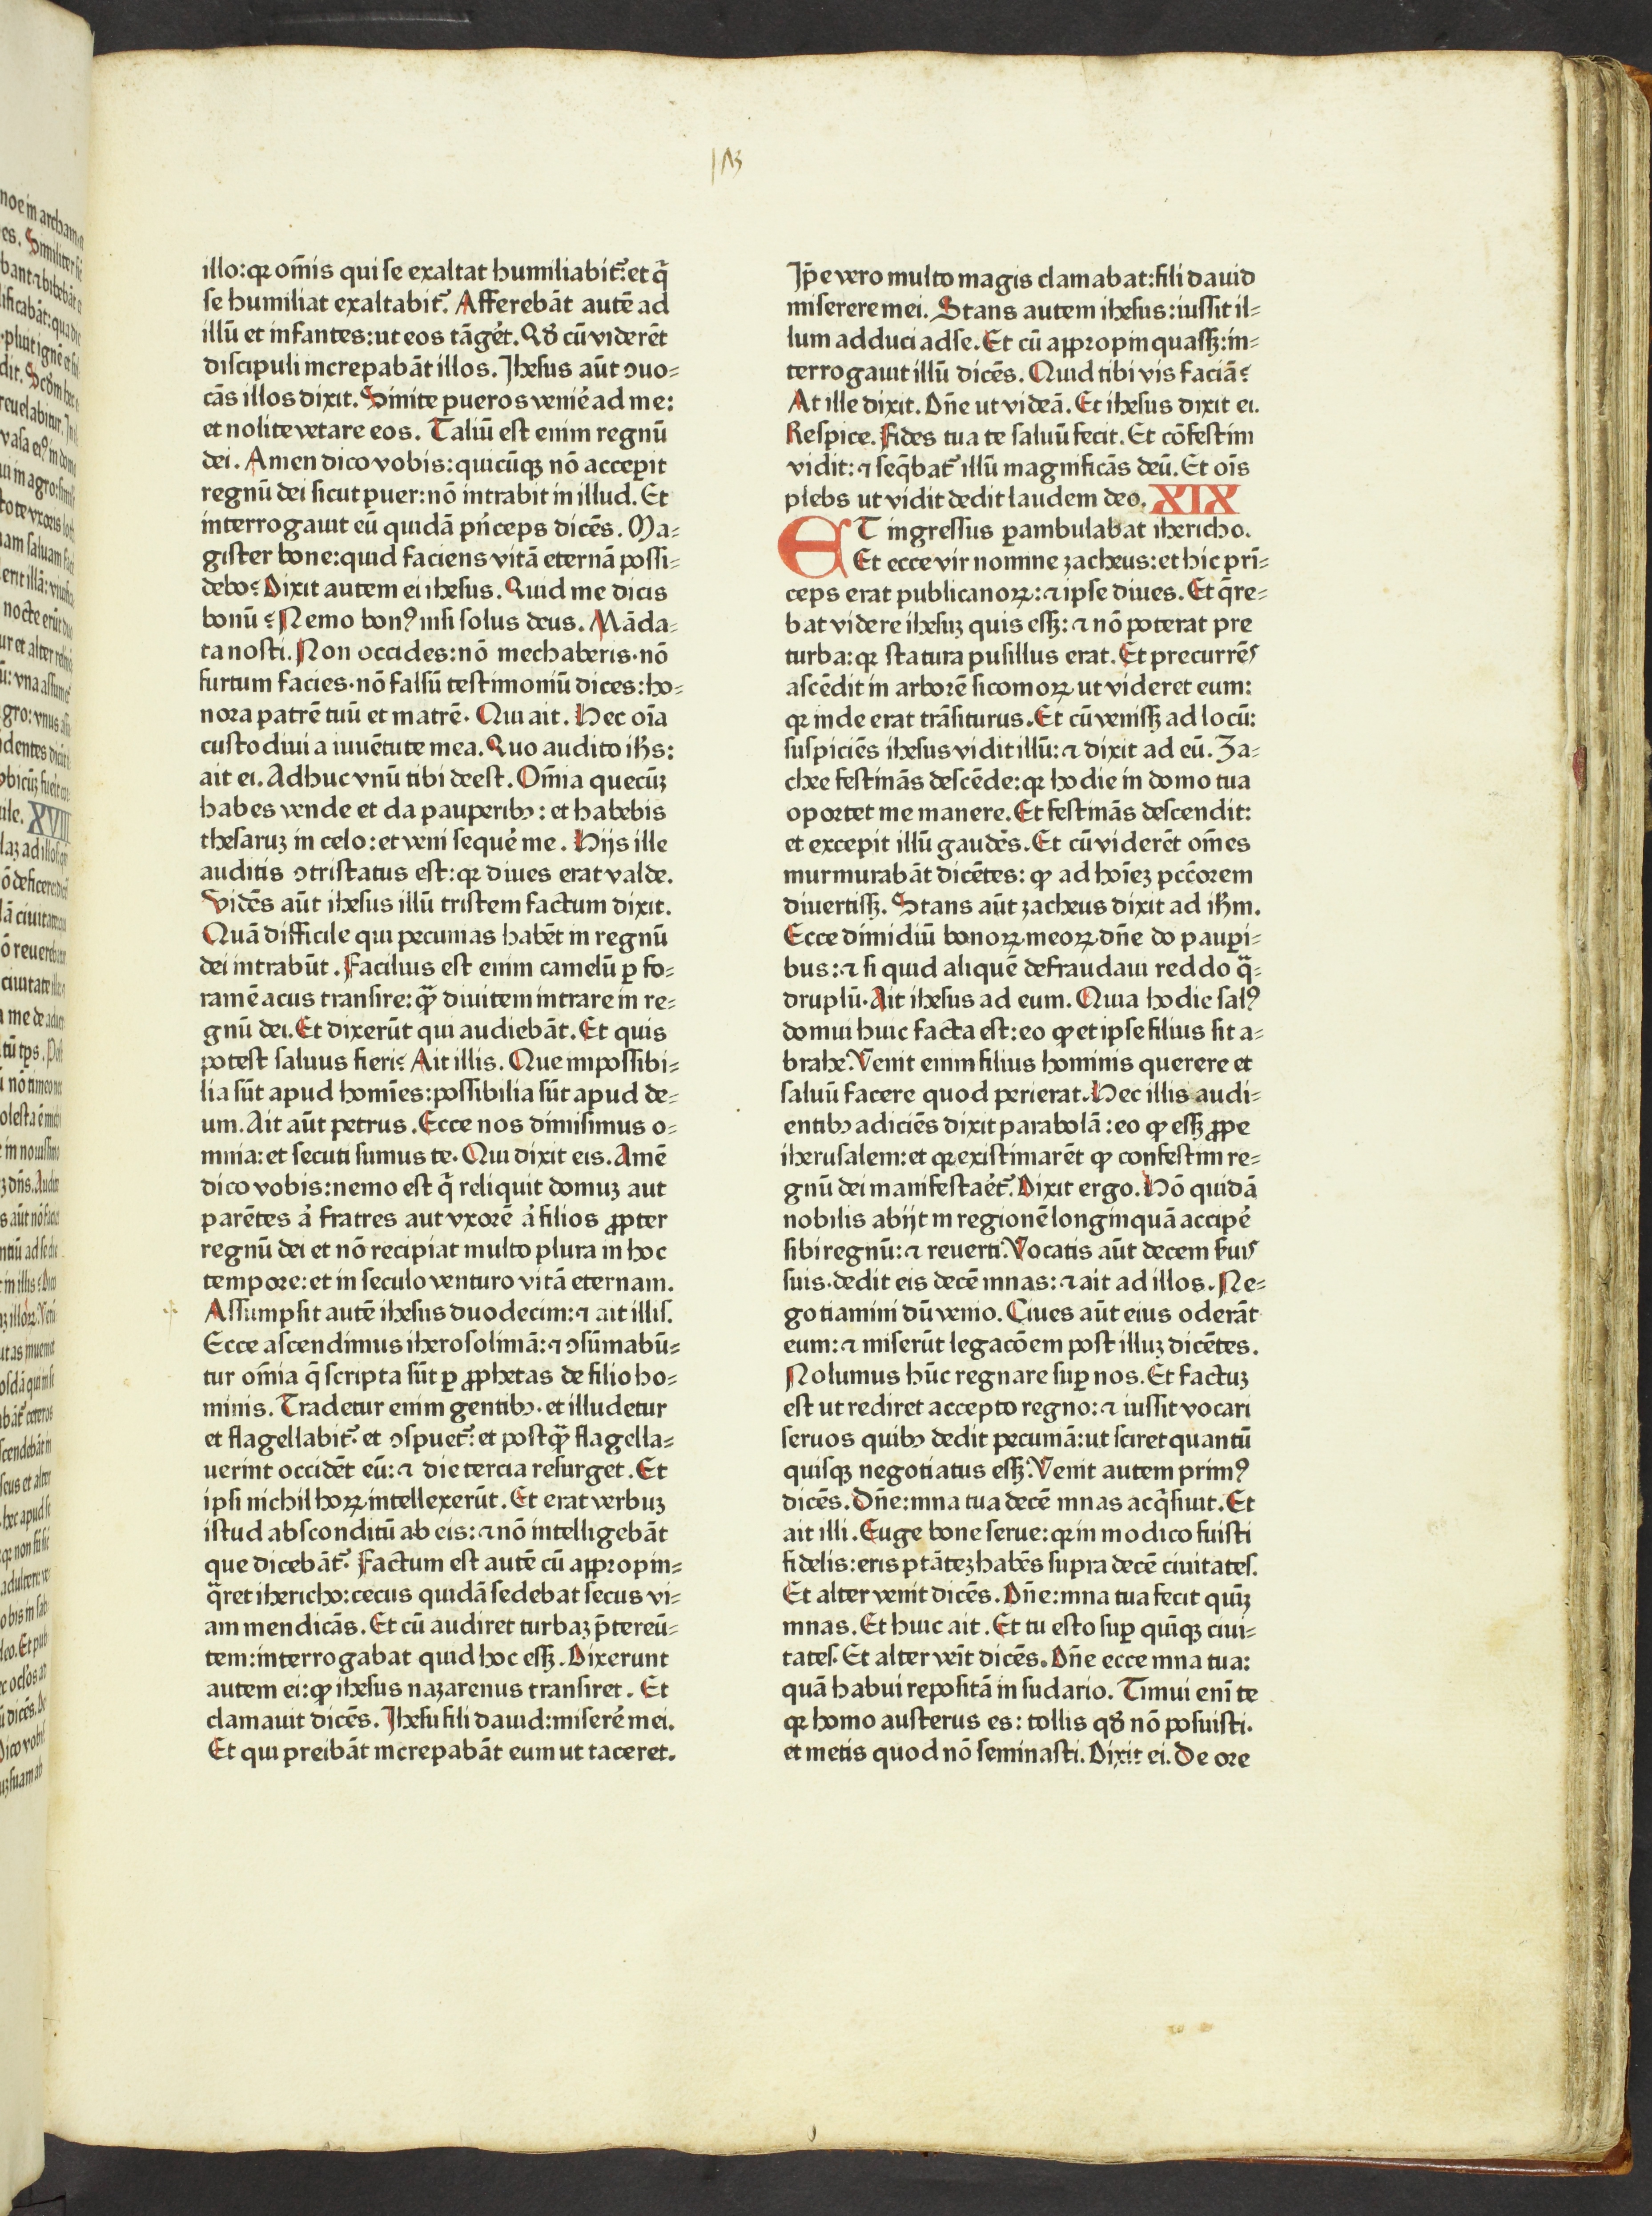 illo:qꝛ om̄is qui se exaltat humiliabit᷑:et q̄
se humiliat exaltabit᷑. Afferebāt autē ad
illū et infantes:ut eos tāgeret. Qd̄ cū viderēt
discipuli increpabāt illos. Jhesus aūt ↄuo⸗
cās illos dixit. Sinite pueros venire ad me:
et nolite vetare eos. Taliū est enim regnū
dei. Amen dico vobis:quicūqꝫ nō acceꝑit
regnū dei sicut puer:nō intrabit in illud. Et
interrogauit eū quidā pn̄ceps dicēs. Ma⸗
gister bone:quid faciens vitā eternā possi⸗
debo? Dixit autem ei ihesus. Quid me dicis
bonū? Nemo bonꝰ nisi solus deus. Māda⸗
ta nosti. Non occides:nō mechaberis·nō
furtum facies·nō falsū testimoniū dices:ho⸗
nora patrē tuū et matrē. Qui ait. Hec oīa
custodiui a iuuētute mea. Quo audito ih̄s:
ait ei. Adhuc vnū tibi deest. Om̄ia quecūꝫ
habes vende et da pauperibꝫ: et habebis
thesaruꝫ in celo: et veni sequē me. Hijs ille
auditis ↄtristatus est:qꝛ diues erat valde.
Vidēs aūt ihesus illū tristem factum dixit.
Quā difficile qui pecunias habēt in regnū
dei intrabūt. Facilius est enim camelū ꝑ fo⸗
ramē acus transire: qͣ̄ diuitem intrare in re⸗
gnū dei. Et dixerūt qui audiebāt. Et quis
potest saluus fieri? Ait illis. Que impossibi⸗
lia sūt apud homīes:possibilia sūt apud de⸗
um. Ait aūt petrus. Ecce nos dimisimus o⸗
mnia: et secuti sumus te. Qui dixit eis. Amē
dico vobis:nemo est q̄ reliquit domuꝫ aut
parētes a᷑ fratres aut vxorē a᷑ filios ꝓpter
regnū dei et nō recipiat multo plura in hoc
tempore:et in seculo venturo vitā eternam.
Assumpsit autē ihesus duodecim:⁊ ait illis.
Ecce ascendimus iherosolimā:⁊ ↄsūmabū⸗
tur om̄ia q̄ scripta sūt ꝑ ꝓphetas de filio ho⸗
minis. Tradetur enim gentibꝫ. et illudetur
et flagellabit᷑. et ↄspuet᷑: et postqͣ̄ flagella⸗
uerint occidēt eū: ⁊ die tercia resurget. Et
ipsi nichil hoꝝ intellexerūt. Et erat verbuꝫ
istud absconditū ab eis: ⁊ nō intelligebāt
que dicebāt᷑. Factum est autē cū appropin⸗
q̄ret ihericho:cecus quidā sedebat secus vi⸗
am mendicās. Et cū audiret turbaꝫ p̄tereū⸗
tem:interrogabat quid hoc essꝫ. Dixerunt
autem ei:ꝙ ihesus nazarenus transiret. Et
clamauit dicēs. Jhesu fili dauid:miserē mei.
Et qui preibāt increpabāt eum ut taceret.
Jp̄e vero multo magis clamabat:fili dauid
miserere mei. Stans autem ihesus:iussit il⸗
lum adduci ad se. Et cū appropinquassꝫ:in⸗
terrogauit illū dicēs. Quid tibi vis faciā?
At ille dixit. Dn̄e ut videā. Et ihesus dixit ei.
Respice. Fides tua te saluū fecit. Et cōfestim
vidit: ⁊ seq̄bat᷑ illū magnificās deū. Et oīs
plebs ut vidit dedit laudem deo. XIX
ET ingressus ꝑambulabat ihericho.
Et ecce vir nomine zacheus: et hic pri⸗
ceps erat publicanoꝝ: ⁊ ipse diues. Et q̄re⸗
bat videre ihesuꝫ quis essꝫ: ⁊ nō poterat pre
turba: qꝛ statura pusillus erat. Et precurrēs
ascēdit in arborē sicomoꝝ ut videret eum:
qꝛ inde erat trāsiturus. Et cū venissꝫ ad locū:
suspiciēs ihesus vidit illū: ⁊ dixit ad eū. Za⸗
chee festinās descēde: qꝛ hodie in domo tua
oportet me manere. Et festinās descendit:
et excepit illū gaudēs. Et cū viderēt om̄es
murmurabāt dicētes: ꝙ ad hoīeꝫ pcc̄orem
diuertissꝫ. Stans aūt zacheus dixit ad ih̄m.
Ecce dimidiū bonoꝝ meoꝝ dn̄e do pauꝑi⸗
bus: ⁊ si quid aliquē defraudaui reddo qͣ̄⸗
druplū. Ait ihesus ad eum. Quia hodie salꝰ
domui huic facta est: eo ꝙ et ipse filius sit a⸗
brahe. Venit enim filius hominis querere et
saluū facere quod perierat. Hec illis audi⸗
entibꝫ adiciēs dixit parabolā: eo ꝙ essꝫ ꝓpe
iherusalem: et qꝛ existimarēt ꝙ confestim re⸗
gnū dei manifestaret᷑. Dixit ergo. Hō quidā
nobilis abijt in regionē longinquā acciperē
sibi regnū: ⁊ reuerti. Vocatis aūt decem seruis
suis·dedit eis decē mnas: ⁊ ait ad illos. Ne⸗
gotiamini dū venio. Ciues aūt eius oderāt
eum: ⁊ miserūt legacōem post illuꝫ dicētes.
Nolumus hūc regnare suꝑ nos. Et factuꝫ
est ut rediret accepto regno: ⁊ iussit vocari
seruos quibꝫ dedit pecuniā: ut sciret quantū
quisqꝫ negotiatus essꝫ. Venit autem primꝰ
dicēs. Dn̄e:mna tua decē mnas acq̄siuit. Et
ait illi. Euge bone serue: qꝛ in modico fuisti
fidelis: eris ptātēꝫ habēs supra decē ciuitates.
Et alter venit dicēs. Dn̄e:mna tua fecit quīꝫ
mnas. Et huic ait. Et tu esto suꝑ quīqꝫ ciui⸗
tates. Et alter veīt dicēs. Dn̄e ecce mna tua:
quā habui repositā in sudario. Timui enī te
qꝛ homo austerus es: tollis qd̄ nō posuisti.
et metis quod nō seminasti. Dixit ei. De ore